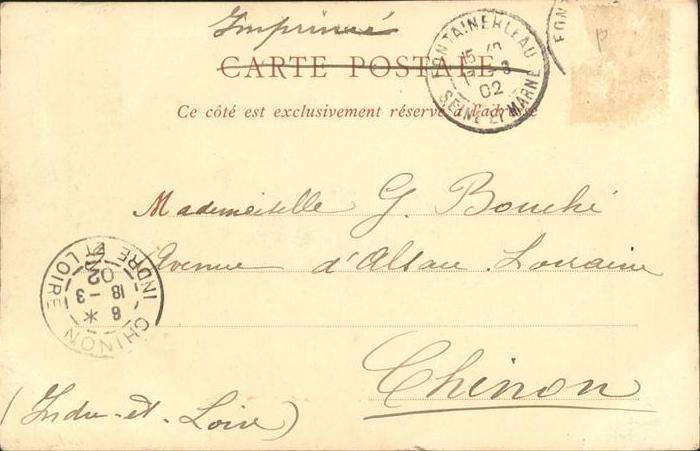 Imprimé
CARTE POSTALE
Ce côté est exclusivement réservé à l'adresse
FONTAINEBLEAU
02
SEINE ET MARNE
FON
P
Mademoiselle G. Bouché
Avenue d'Alsace Lorraine
Chinon
(Indre-et-Loire)
CHINON
8 *
18 - 3
02
INDRE ET LOIRE